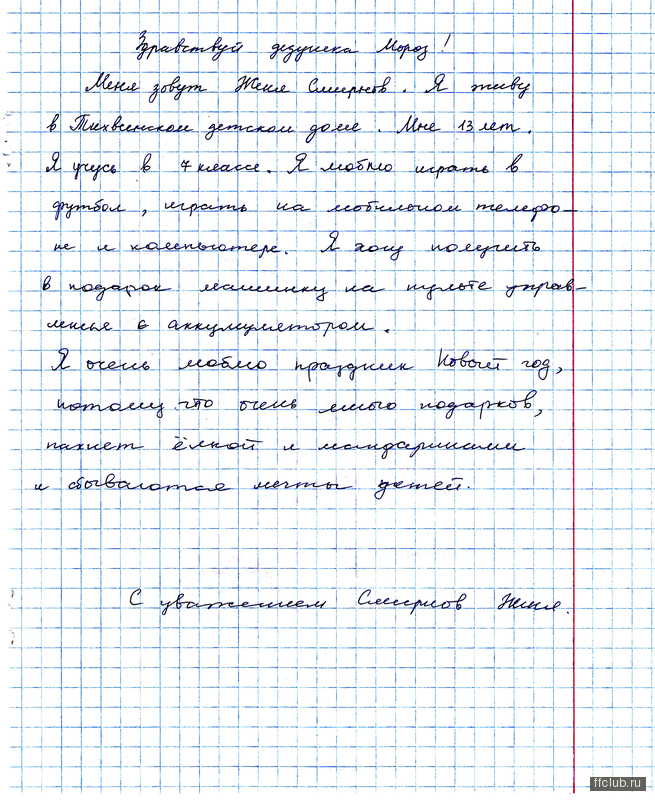 Здравствуй дедушка Мороз!
Меня зовут Женя Смирнов. Я живу
в Тихвинском детском доме. Мне 13 лет.
Я учусь в 7 классе. Я люблю играть в
футбол, играть на мобильном телефо-
не и компьютере. Я хочу получить
в подарок машинку на пульте управ-
ленье с аккумулятором.
Я очень люблю праздник Новый год,
потому что очень много подарков,
пахнет ёлкой и мандаринами
и сбываются мечты детей.
С уважением Смирнов Женя.
ffclub.ru